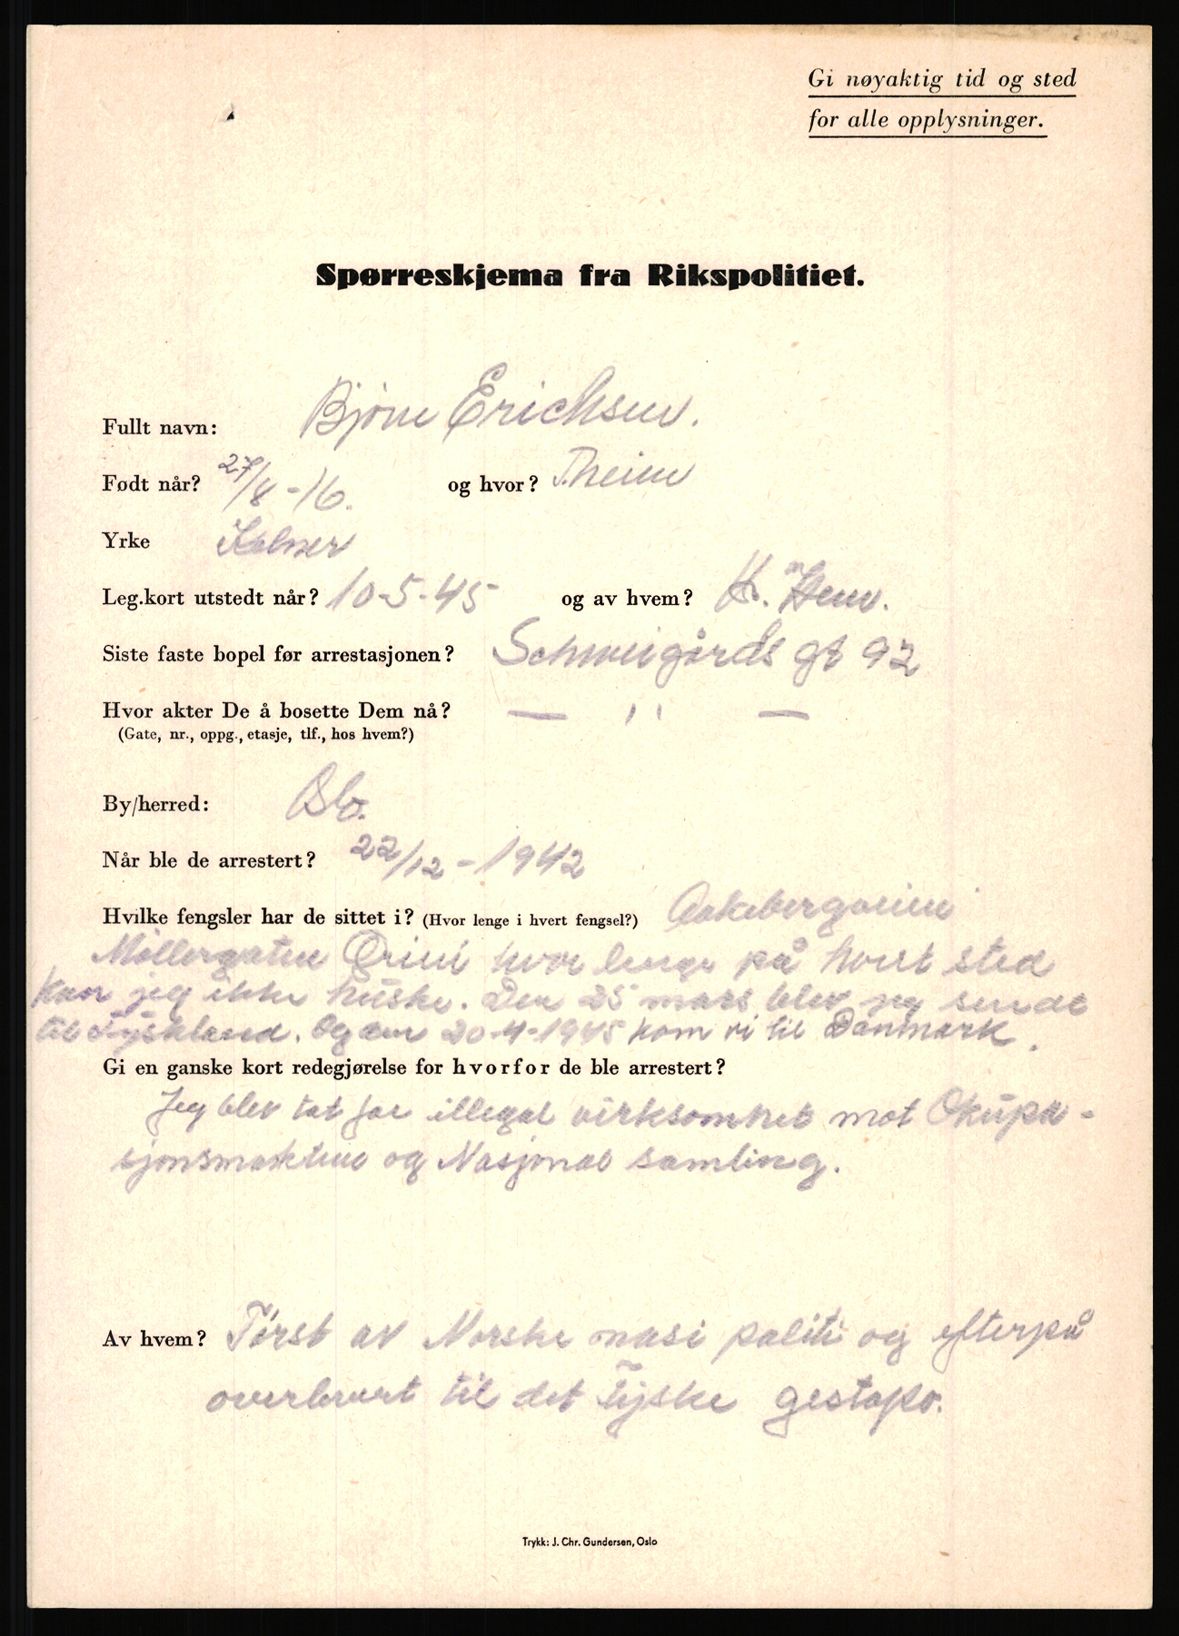 Gi nøyaktig tid og sted
for alle opplysninger.
Spørreskjema fra Rikspolitiet.
Fullt navn: Bjørn Erichsen.
Født når? 27/8-16. og hvor? T.heim
Yrke Kelner
Leg.kort utstedt når? 10-5-45 og av hvem?
Siste faste bopel før arrestasjonen? Schweigårds gt 92
Hvor akter De å bosette Dem nå? — ,, —
(Gate, nr., oppg., etasje, tlf., hos hvem?)
By/herred:
Når ble de arrestert? 22/12-1942
Hvilke fengsler har de sittet i? (Hvor lenge i hvert fengsel?) Aakebergveien
Møllergaten Grini hvor lenge på hvert sted
kan jeg ikke huske. Den 25 mars blev jeg sendt
til Tyskland. Og den 20-4-1945 kom vi til Danmark.
Gi en ganske kort redegjørelse for hvorfor de ble arrestert?
Jeg blev tat for illegal virksomhet mot Okupa-
sjonsmakten og Nasjonal samling.
Av hvem? Først av Norske nasi politi og efterpå
overlevert til det Tyske gestapo.
Trykk: J. Chr. Gundersen, Oslo